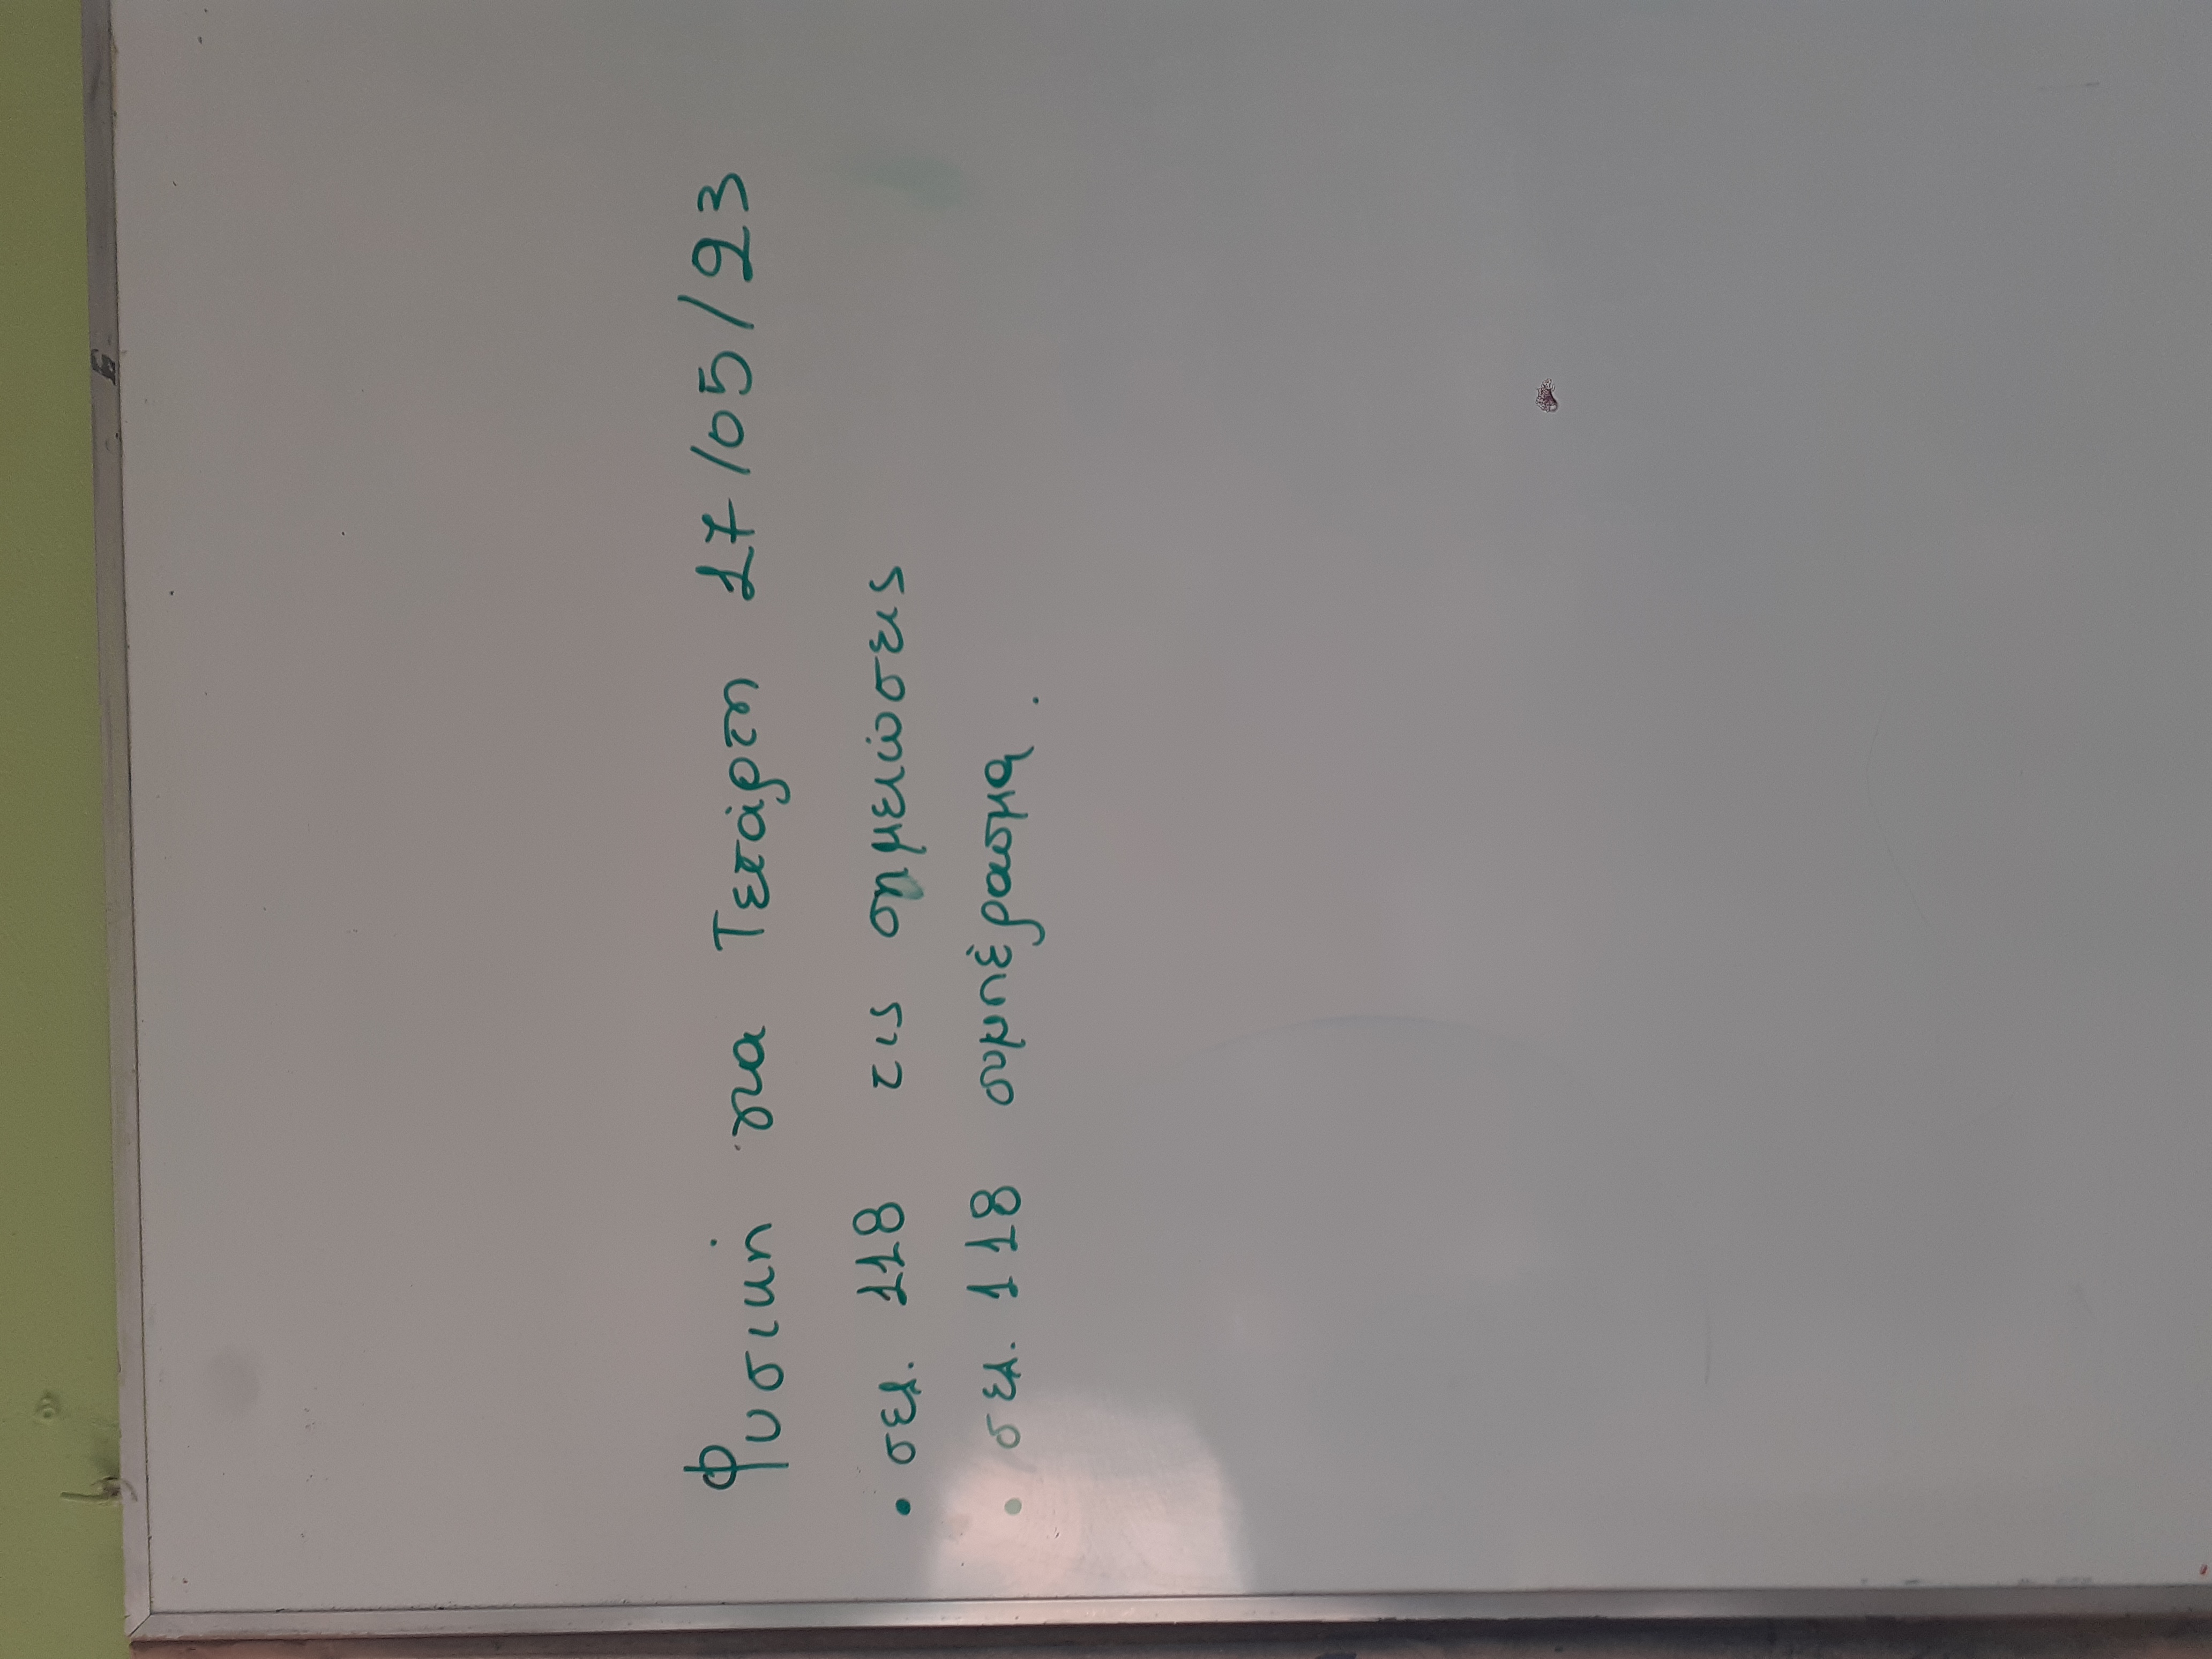 Φυσική για Τετάρτη 17/05/23
• σελ. 118 τις σημειώσεις
• σελ. 118 συμπέρασμα.